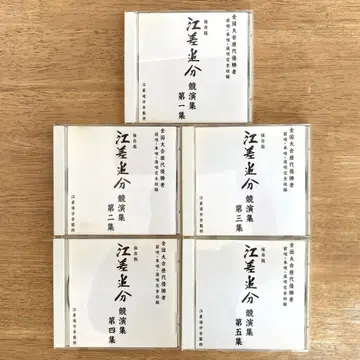 全国大会歴代優勝者
前唄・本唄・後唄完全収録
保存版
江差追分
競演集
第一集
江差追分会監修
全国大会歴代優勝者
前唄・本唄・後唄完全収録
保存版
江差追分
競演集
第二集
江差追分会監修
全国大会歴代優勝者
前唄・本唄・後唄完全収録
保存版
江差追分
競演集
第三集
江差追分会監修
全国大会歴代優勝者
前唄・本唄・後唄完全収録
保存版
江差追分
競演集
第四集
江差追分会監修
全国大会歴代優勝者
前唄・本唄・後唄完全収録
保存版
江差追分
競演集
第五集
江差追分会監修